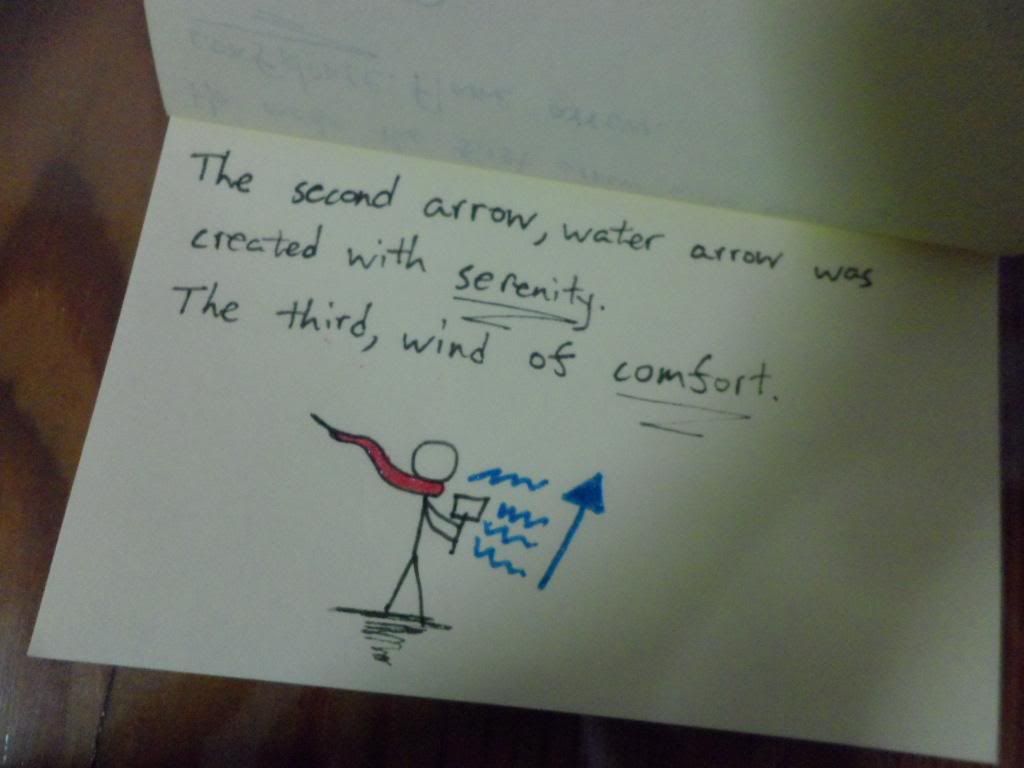 The second arrow, water arrow was
created with serenity.
The third, wind of comfort.